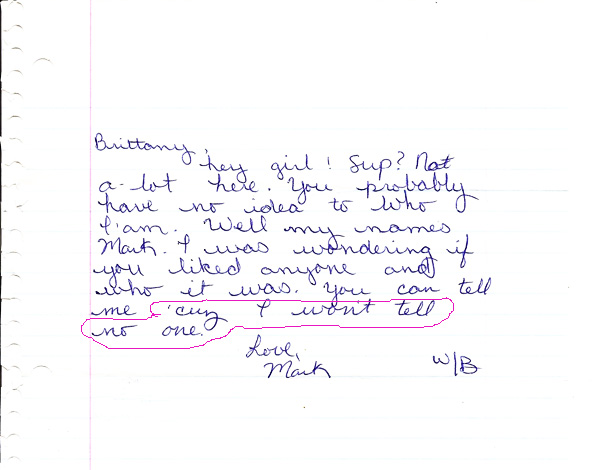 Brittany,
hey girl! Sup? Not
a-lot here. You probably
have no idea to who
I am. Well my names
Mark. I was wondering if
you liked anyone and
who it was. You can tell
me 'cuz I won't tell
no one.
Love,
Mark
W/B